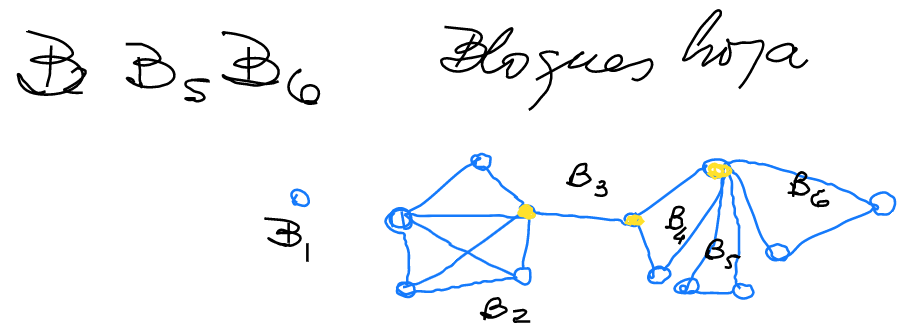 B₂ B₅ B₆ Bloques hoja
B₃
B₆
B₄
B₁
B₅
B₂